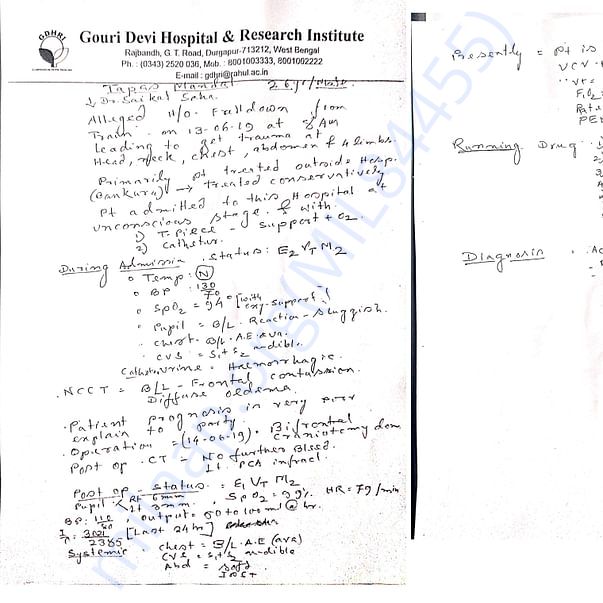 GDHRI
Gouri Devi Hospital & Research Institute
Rajbandh, G. T. Road, Durgapur-713212, West Bengal
Ph. : (0343) 2520 036, Mob. : 8001003333, 8001002222
E-mail : gdhri@rahul.ac.in
Tapas Mandal 26 yr/Male
Dr. Saikat Saha.
Alleged H/O. Fall down from
Train on 13-06-19 at 8 AM
Leading to get trauma at
Head, neck, chest, abdomen & 4 limbs.
Primarily pt treated outside Hosp.
(Bankura) → treated conservatively
Pt admitted to this Hospital at
unconscious stage & with
1) T. Piece - Support + O2.
2) Catheter.
During Admission status: E2 VT M2
Temp: N
BP: 130/70
SpO2 = 94% [with oxy-support]
Pupil = B/L. Reaction - Sluggish.
chest - B/L. A.E
CVS = S1+S2 audible.
urine = Haemorrhagic.
NCCT = B/L - Frontal contussion.
Diffuse oedema.
Patient prognosis is very poor
explain to party.
Operation = (14-06-19). Bifrontal
Craniotomy done
Post op. CT - No further Bleed.
Lt. PCA infract.
Post op - status = E1 VT M2
Pupil < Rt 6mm
Lt 3mm, SpO2 = 99%. HR = 79/min
BP: 110/ output = 50 to 100ml @ hr.
3021/2385 [Last 24 hr]
Systemic. chest = B/L. A.E (ave)
CVS = S1+S2 audible
Abd = soft
Presently = Pt is
VCV
FiO2
Rate
PE
Running Drug
Diagnosis